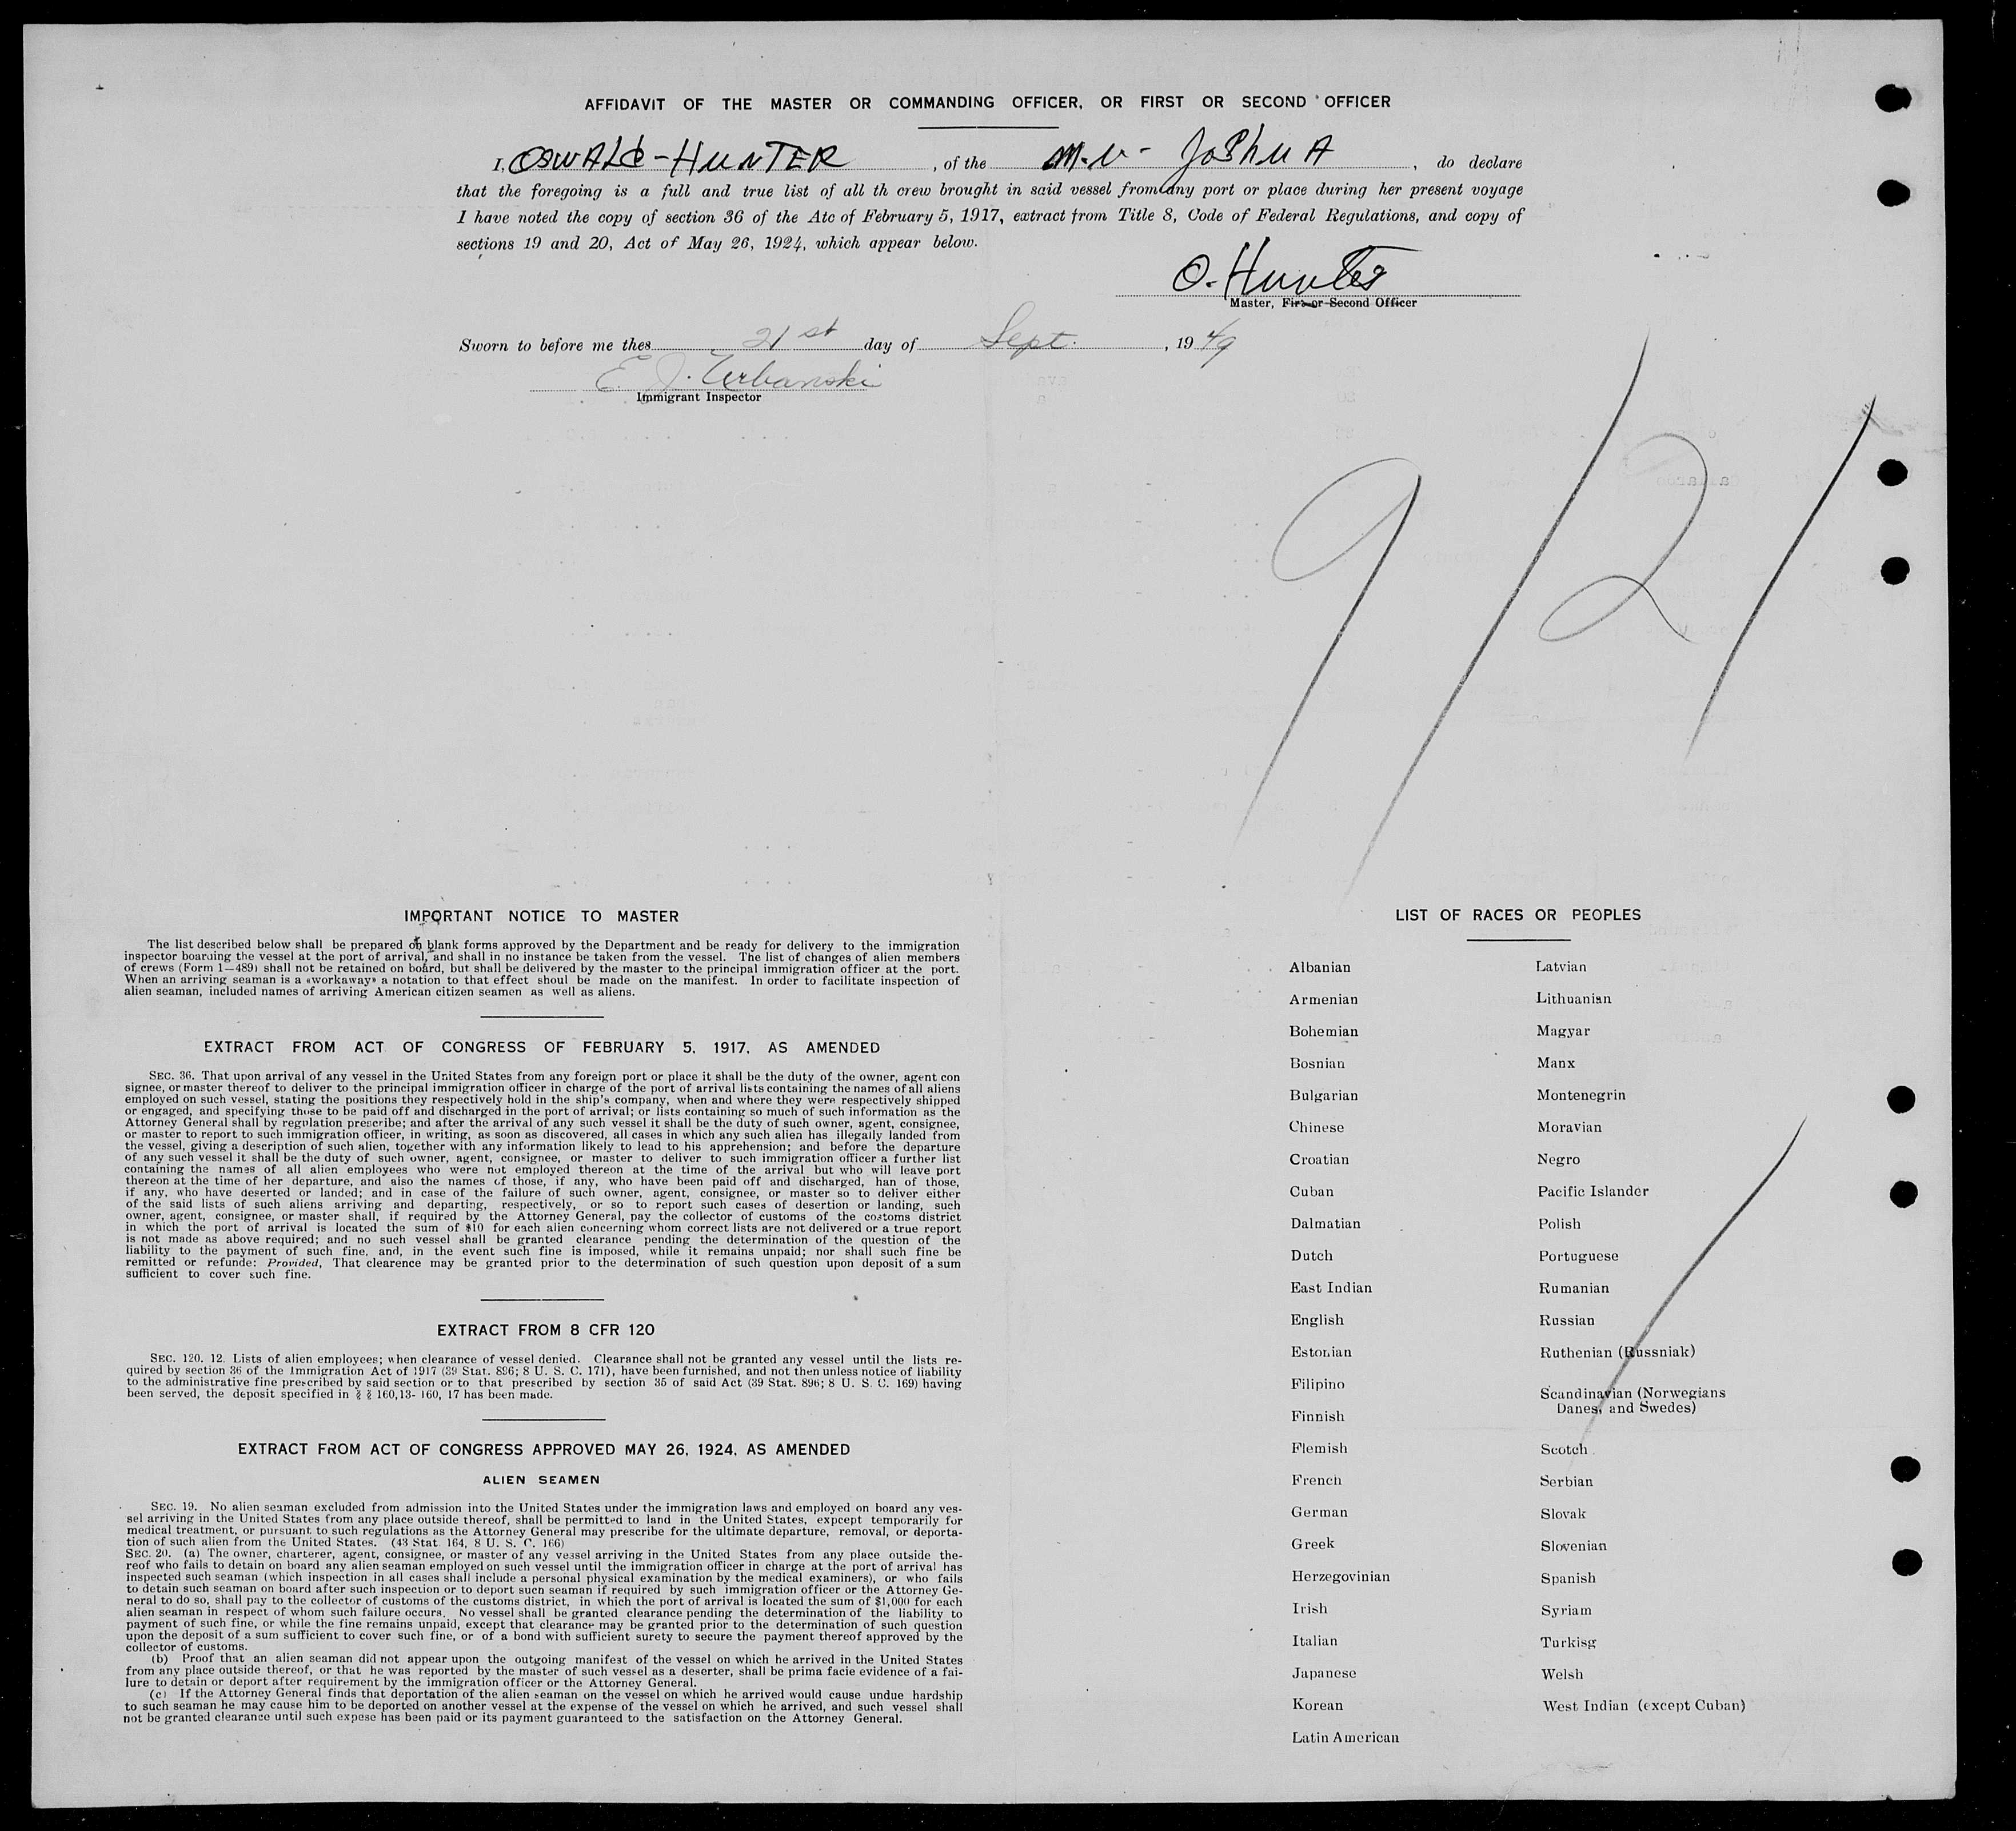 AFFIDAVIT OF THE MASTER OR COMMANDING OFFICER, OR FIRST OR SECOND OFFICER
I, OSWALd-HUNTER, of the M.V- JoShUA, do declare
that the foregoing is a full and true list of all th crew brought in said vessel from any port or place during her present voyage
I have noted the copy of section 36 of the Atc of February 5, 1917, extract from Title 8, Code of Federal Regulations, and copy of
sections 19 and 20, Act of May 26, 1924, which appear below.
O. Hunter
Master, First or Second Officer
Sworn to before me thes 21st day of Sept., 1949
E. J. Urbanski
Immigrant Inspector
9/21/
IMPORTANT NOTICE TO MASTER
The list described below shall be prepared on blank forms approved by the Department and be ready for delivery to the immigration
inspector boarding the vessel at the port of arrival, and shall in no instance be taken from the vessel. The list of changes of alien members
of crews (Form 1—489) shall not be retained on board, but shall be delivered by the master to the principal immigration officer at the port.
When an arriving seaman is a «workaway» a notation to that effect shoul be made on the manifest. In order to facilitate inspection of
alien seaman, included names of arriving American citizen seamen as well as aliens.
EXTRACT FROM ACT OF CONGRESS OF FEBRUARY 5, 1917, AS AMENDED
SEC. 36. That upon arrival of any vessel in the United States from any foreign port or place it shall be the duty of the owner, agent con
signee, or master thereof to deliver to the principal immigration officer in charge of the port of arrival lists containing the names of all aliens
employed on such vessel, stating the positions they respectively hold in the ship's company, when and where they were respectively shipped
or engaged, and specifying those to be paid off and discharged in the port of arrival; or lists containing so much of such information as the
Attorney General shall by regulation prescribe; and after the arrival of any such vessel it shall be the duty of such owner, agent, consignee,
or master to report to such immigration officer, in writing, as soon as discovered, all cases in which any such alien has illegally landed from
the vessel, giving a description of such alien, together with any information likely to lead to his apprehension; and before the departure
of any such vessel it shall be the duty of such owner, agent, consignee, or master to deliver to such immigration officer a further list
containing the names of all alien employees who were not employed thereon at the time of the arrival but who will leave port
thereon at the time of her departure, and also the names of those, if any, who have been paid off and discharged, han of those,
if any, who have deserted or landed; and in case of the failure of such owner, agent, consignee, or master so to deliver either
of the said lists of such aliens arriving and departing, respectively, or so to report such cases of desertion or landing, such
owner, agent, consignee, or master shall, if required by the Attorney General, pay the collector of customs of the costoms district
in which the port of arrival is located the sum of $10 for each alien concerning whom correct lists are not delivered or a true report
is not made as above required; and no such vessel shall be granted clearance pending the determination of the question of the
liability to the payment of such fine, and, in the event such fine is imposed, while it remains unpaid; nor shall such fine be
remitted or refunde: Provided, That clearence may be granted prior to the determination of such question upon deposit of a sum
sufficient to cover such fine.
EXTRACT FROM 8 CFR 120
SEC. 120. 12. Lists of alien employees; when clearance of vessel denied. Clearance shall not be granted any vessel until the lists re-
quired by section 36 of the Immigration Act of 1917 (39 Stat. 896; 8 U. S. C. 171), have been furnished, and not then unless notice of liability
to the administrative fine prescribed by said section or to that prescribed by section 35 of said Act (39 Stat. 896; 8 U. S. C. 169) having
been served, the deposit specified in § § 160,13- 160, 17 has been made.
EXTRACT FROM ACT OF CONGRESS APPROVED MAY 26, 1924, AS AMENDED
ALIEN SEAMEN
SEC. 19. No alien seaman excluded from admission into the United States under the immigration laws and employed on board any ves-
sel arriving in the United States from any place outside thereof, shall be permitted to land in the United States, expcept temporarily for
medical treatment, or pursuant to such regulations as the Attorney General may prescribe for the ultimate departure, removal, or deporta-
tion of such alien from the United States. (43 Stat 164, 8 U. S. C. 166)
SEC. 20. (a) The owner, charterer, agent, consignee, or master of any vessel arriving in the United States from any place outside the-
reof who fails to detain on board any alien seaman employed on such vessel until the immigration officer in charge at the port of arrival has
inspected such seaman (which inspection in all cases shall include a personal physical examination by the medical examiners), or who fails
to detain such seaman on board after such inspection or to deport sucn seaman if required by such immigration officer or the Attorney Ge-
neral to do so, shall pay to the collector of customs of the customs district, in which the port of arrival is located the sum of $1,000 for each
alien seaman in respect of whom such failure occurs. No vessel shall be granted clearance pending the determination of the liability to
payment of such fine, or while the fine remains unpaid, except that clearance may be granted prior to the determination of such question
upon the deposit of a sum sufficient to cover such fine, or of a bond with sufficient surety to secure the payment thereof approved by the
collector of customs.
(b) Proof that an alien seaman did not appear upon the outgoing manifest of the vessel on which he arrived in the United States
from any place outside thereof, or that he was reported by the master of such vessel as a deserter, shall be prima facie evidence of a fai-
lure to detain or deport after requirement by the immigration officer or the Attorney General.
(c) If the Attorney General finds that deportation of the alien seaman on the vessel on which he arrived would cause undue hardship
to such seaman he may cause him to be deported on another vessel at the expense of the vessel on which he arrived, and such vessel shall
not be granted clearance until such expese has been paid or its payment guaranteed to the satisfaction on the Attorney General.
LIST OF RACES OR PEOPLES
Albanian
Armenian
Bohemian
Bosnian
Bulgarian
Chinese
Croatian
Cuban
Dalmatian
Dutch
East Indian
English
Estonian
Filipino
Finnish
Flemish
French
German
Greek
Herzegovinian
Irish
Italian
Japanese
Korean
Latin American
Latvian
Lithuanian
Magyar
Manx
Montenegrin
Moravian
Negro
Pacific Islander
Polish
Portuguese
Rumanian
Russian
Ruthenian (Russniak)
Scandinavian (Norwegians
Danes, and Swedes)
Scotch
Serbian
Slovak
Slovenian
Spanish
Syriam
Turkisg
Welsh
West Indian (except Cuban)